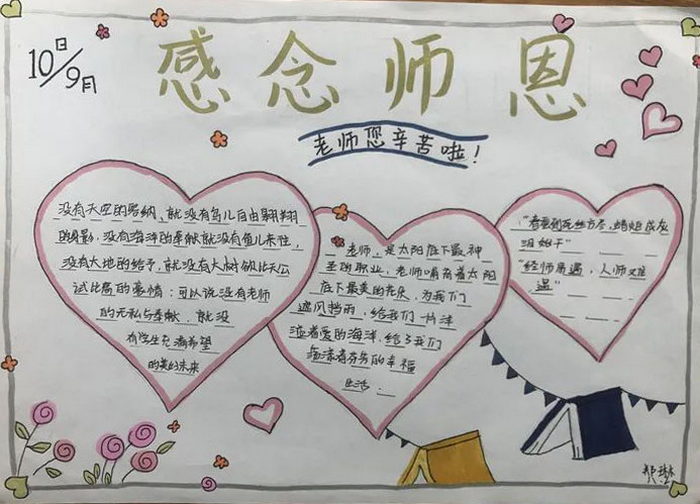 10日/9月
感念师恩
老师您辛苦啦！
没有天空的容纳，就没有鸟儿自由翱翔
的身影，没有海洋的奉献就没有鱼儿来往，
没有大地的给予，就没有大树欲比天公
试比高的豪情；可以说没有老师
的无私与奉献，就没
有学生充满希望
的美好未来
老师，是太阳底下最神
圣的职业，老师有着太阳
底下最美的光庆，为我们
遮风挡雨，给我们一片洋
溢着爱的海洋，给予我们
充满着芬芳的幸福
生活：
“春蚕到死丝方尽，蜡炬成灰
泪始干”
“经师易遇，人师难
遇”